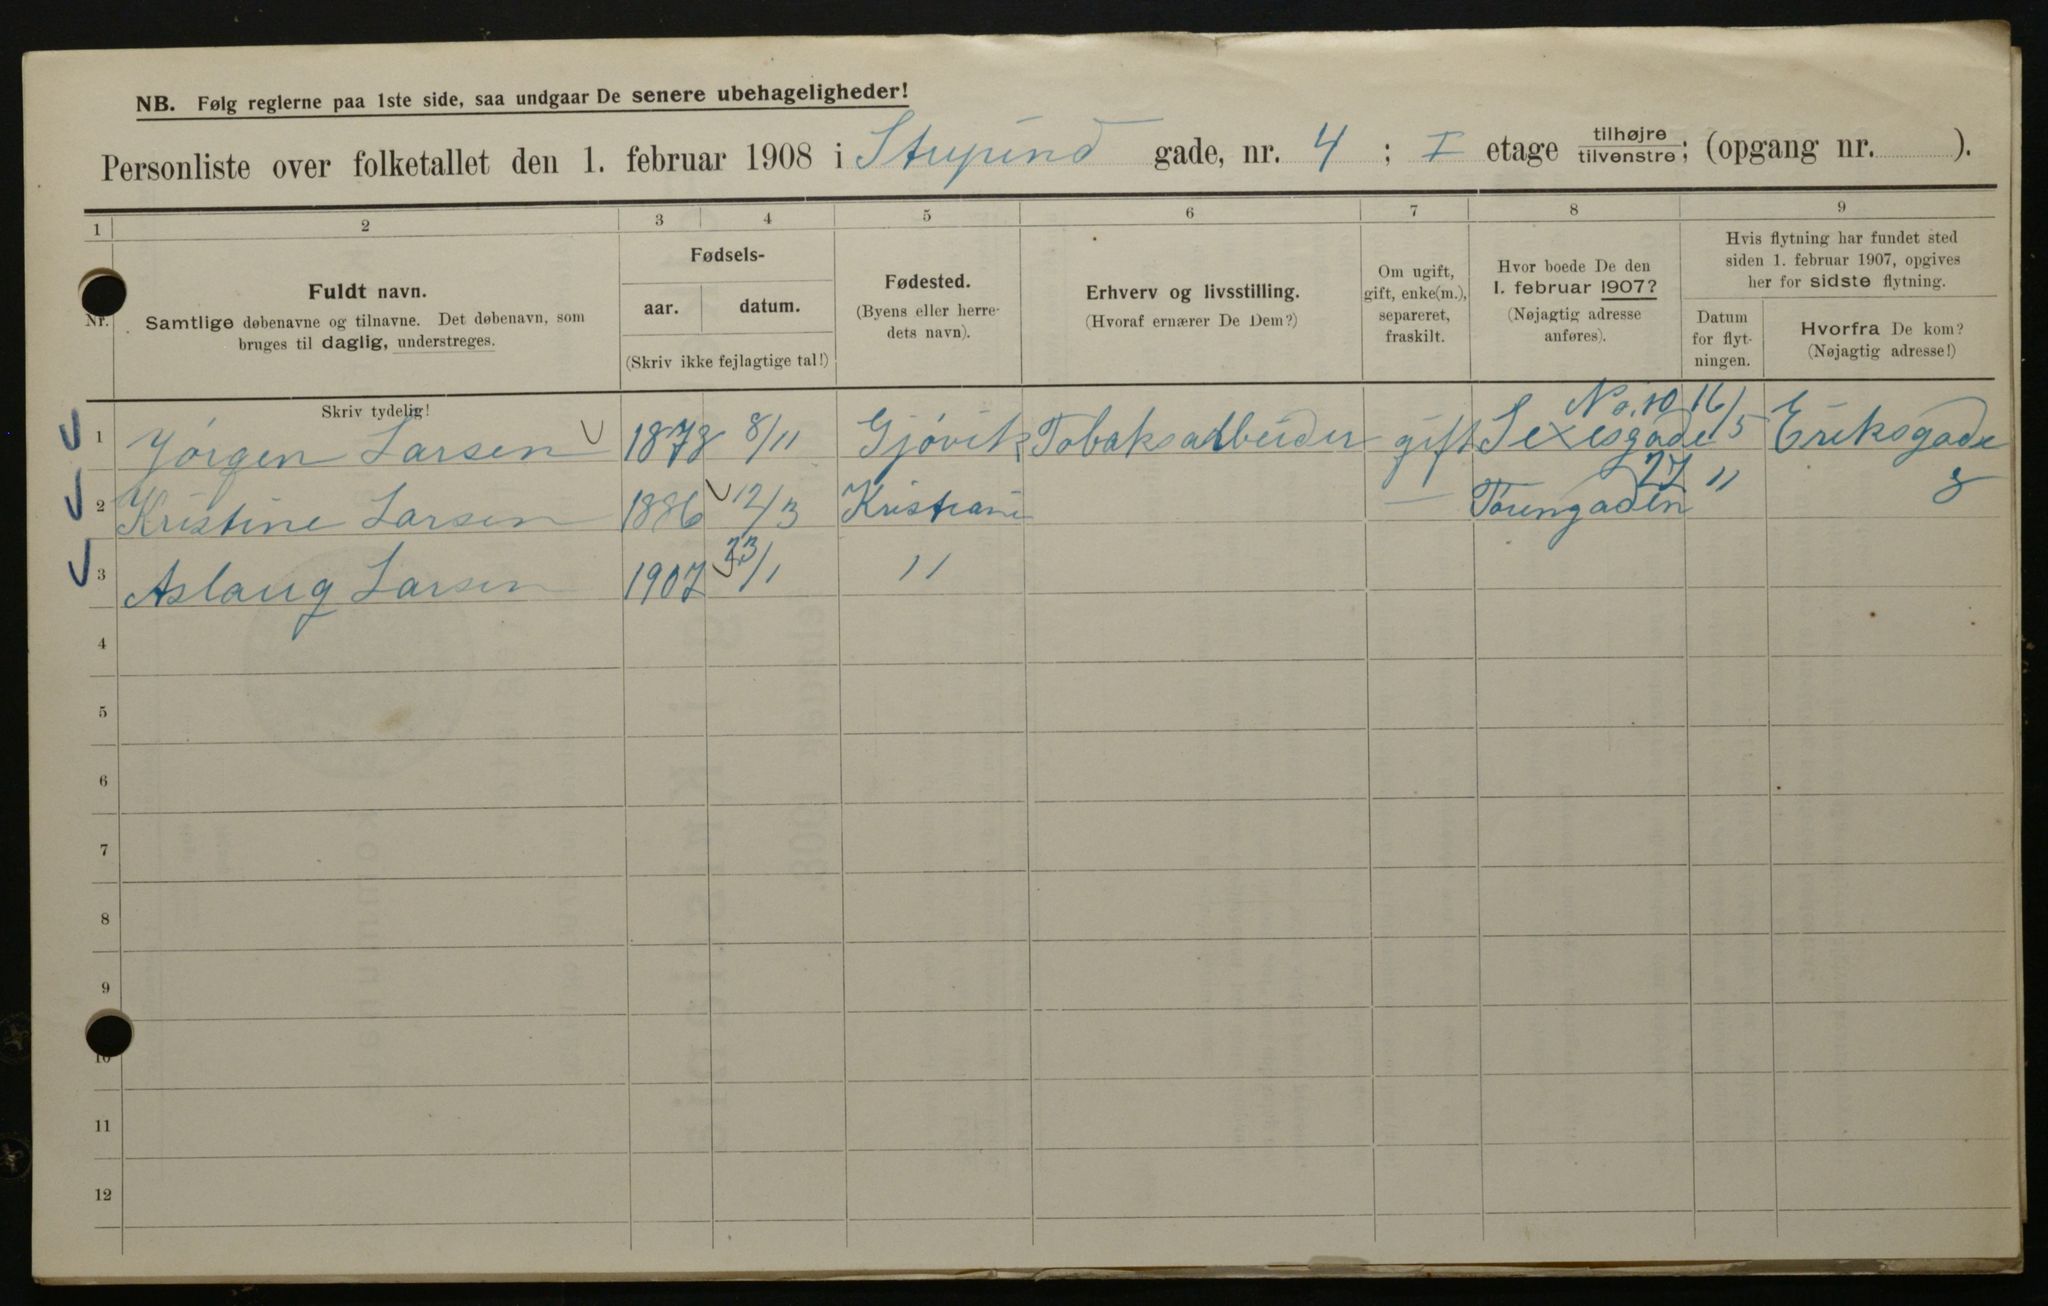 NB. Følg reglerne paa 1ste side, saa undgaar De senere ubehageligheder!
Personliste over folketallet den 1. februar 1908 i gade, nr. 4 ; I etage tilhøjre tilvenstre; (opgang nr. ).
1 2 3 4 5 6 7 8 9
Nr.
Fuldt navn.
Samtlige døbenavne og tilnavne. Det døbenavn, som
bruges til daglig, understreges.
Skriv tydelig!
Fødsels-
aar. datum.
(Skriv ikke fejlagtige tal!)
Fødested.
(Byens eller herre-
dets navn).
Erhverv og livsstilling.
(Hvoraf ernærer De Dem?)
Om ugift,
gift, enke(m.),
separeret,
fraskilt.
Hvor boede De den
1. februar 1907?
(Nøjagtig adresse
anføres).
Hvis flytning har fundet sted
siden 1. februar 1907, opgives
her for sidste flytning.
Datum
for flyt-
ningen.
Hvorfra De kom?
(Nøjagtig adresse!)
1 Jørgen Larsen 1873 8/11 Gjøvik Tobaksarbeider gift No. 10 16/5 Eriksgade
2 Kristine Larsen 1886 12/3 Kristiani — 27 "
3 Aslaug Larsen 1907 23/1 "
4
5
6
7
8
9
10
11
12